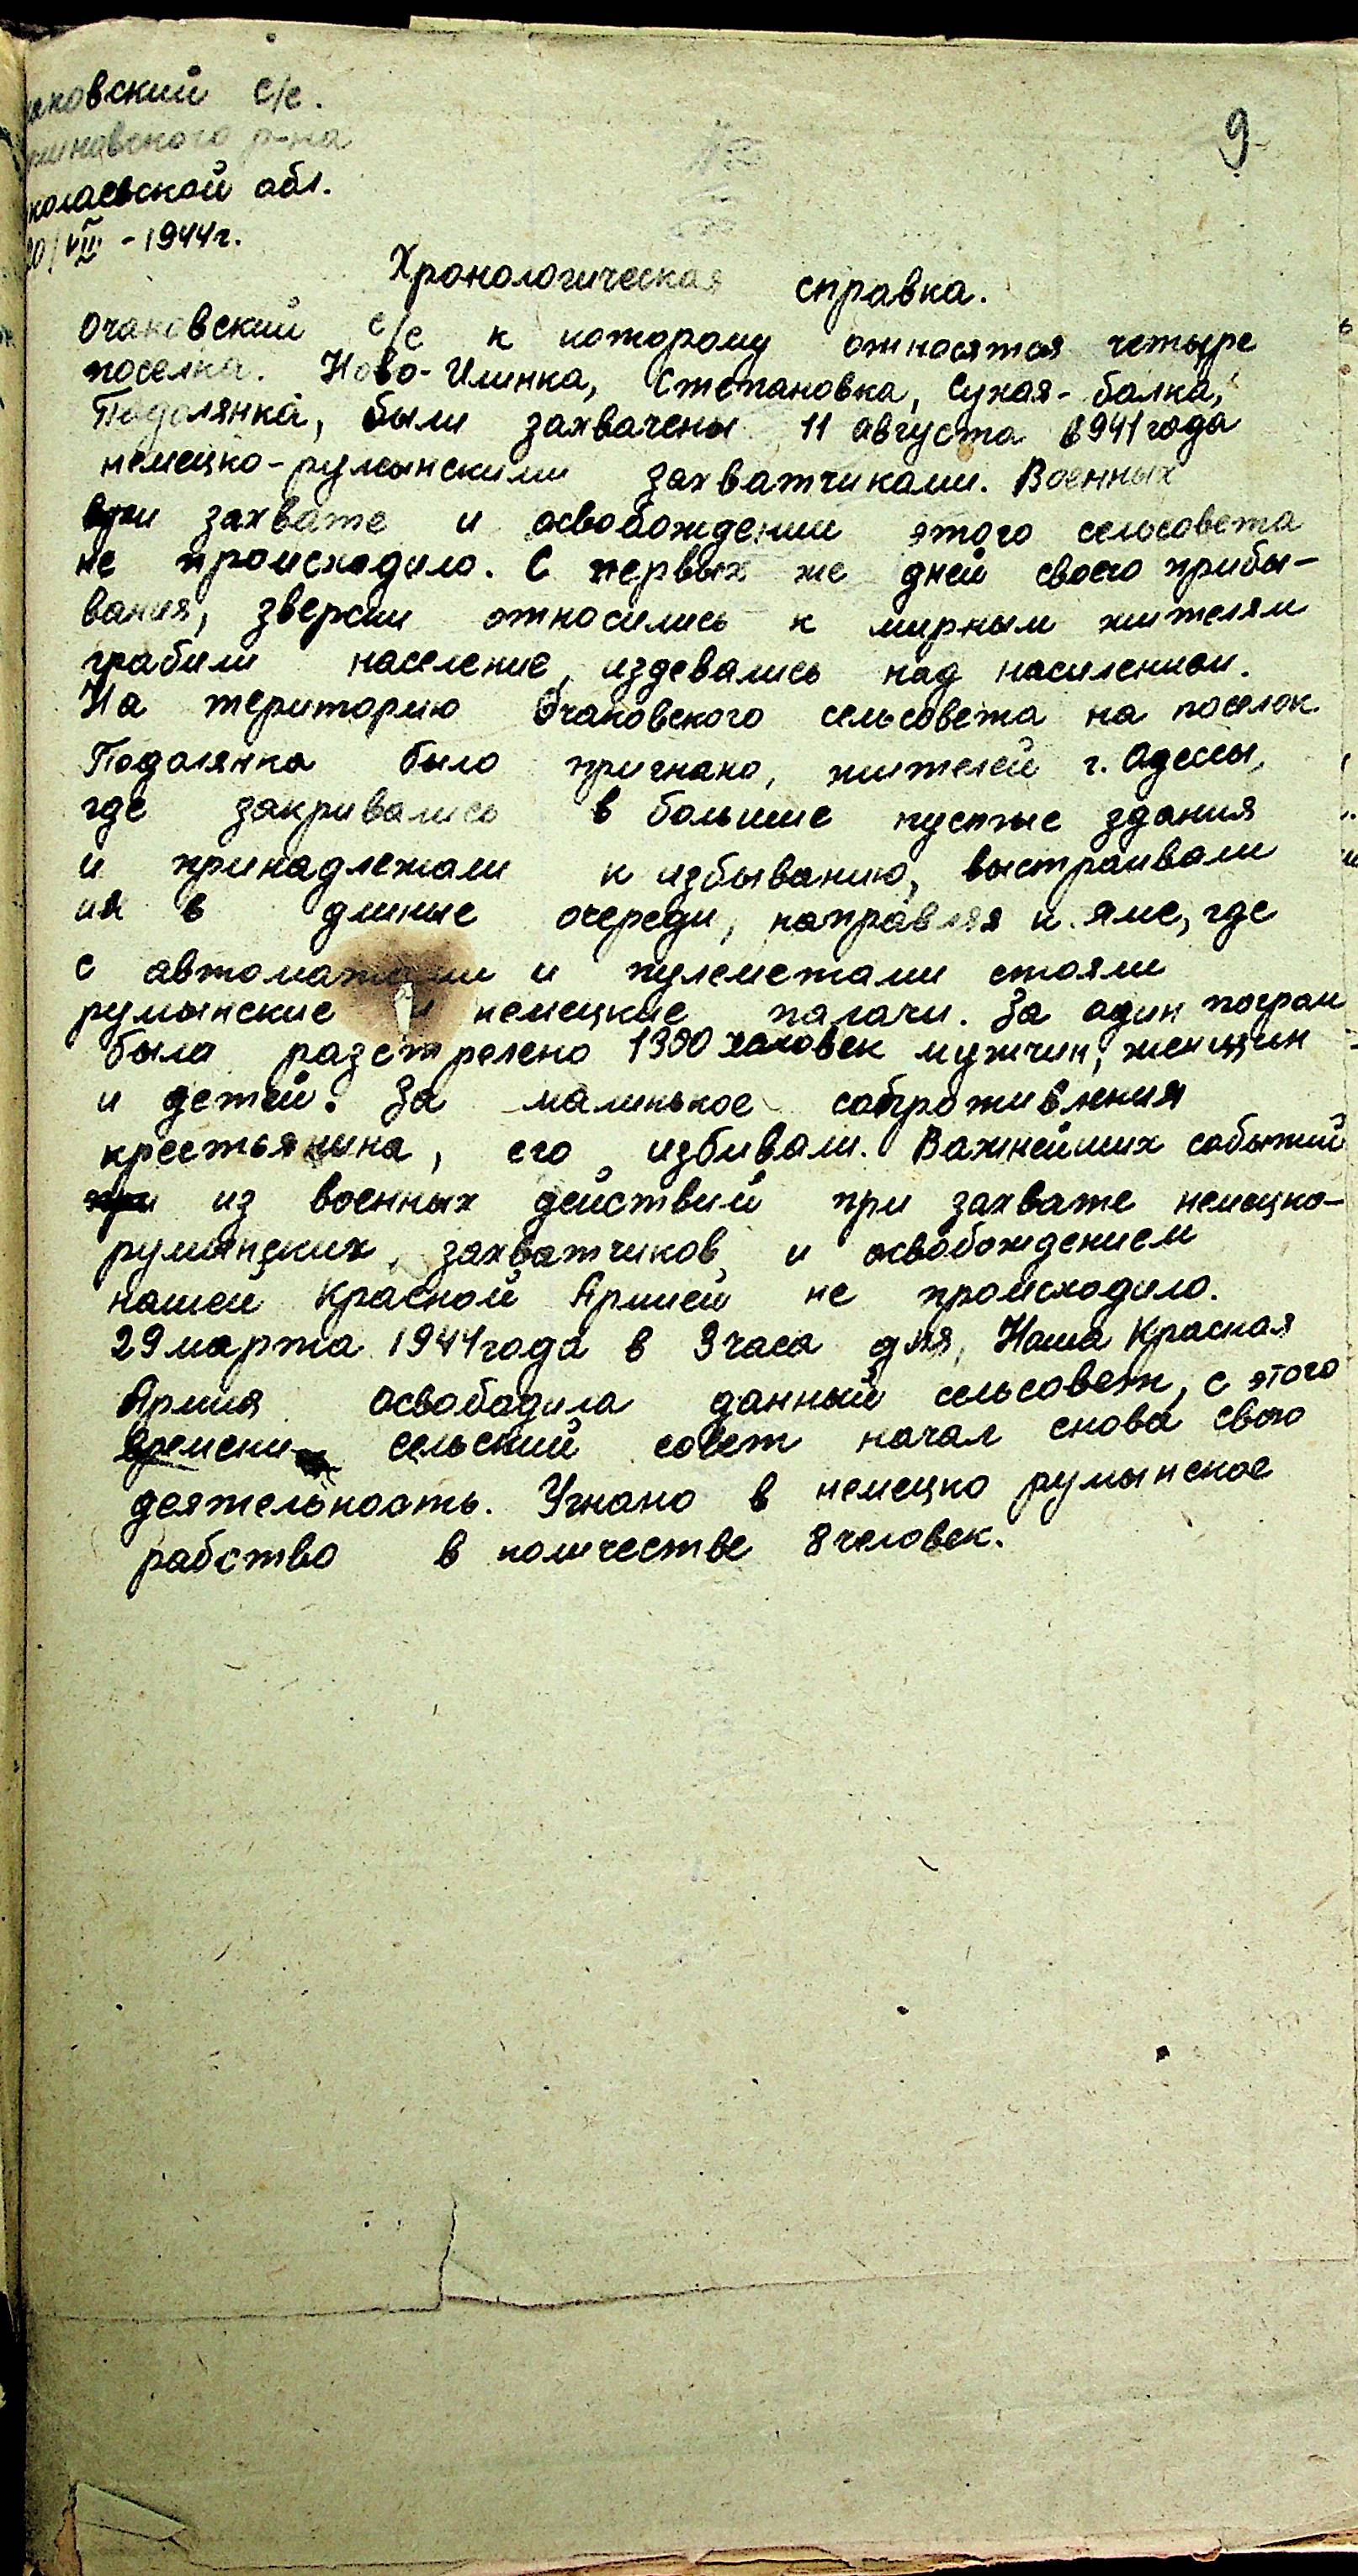 аковский с/с.
9
иновского р-на
колаевской обл.
20/VIII - 1944г.
Хронологическая справка.
Очаковский с/с к которому относятся четыре
поселка. Ново-Илинка, Степановка, Сухая-балка,
Подолянка, были захвачены 11 августа 1941 года
немецко-румынскими захватчиками. Военных
при захвате и освобождении этого сельсовета
не происходило. С первых же дней своего прибы-
вания, зверски относились к мирным жителям
грабили население, издевались над насилением.
На територию Очаковского сельсовета на поселок
Подолянка было пригнано, жителей г. Одессы,
где закривались в большие пустые здания
и принадлежали к избыванию, выстраивали
их в длиные очереди, направляя к яме, где
с автоматами и пулеметами стояли
румынские и немецкие палачи. За один
была разстрелено 1300 человек мужчин, женщин
и детей. За малинькое сопротивления
крестьянина, его избивали. Важнейших событий
из военных действий при захвате немецко-
румынских захватчиков и освобождением
нашей Красной Армией не происходило.
29 марта 1944 года в 3 часа дня, Наша Красная
Армия освободила данный сельсовет, с этого
времени сельский совет начал снова свою
деятельность. Угнано в немецко румынское
рабство в количестве 8 человек.